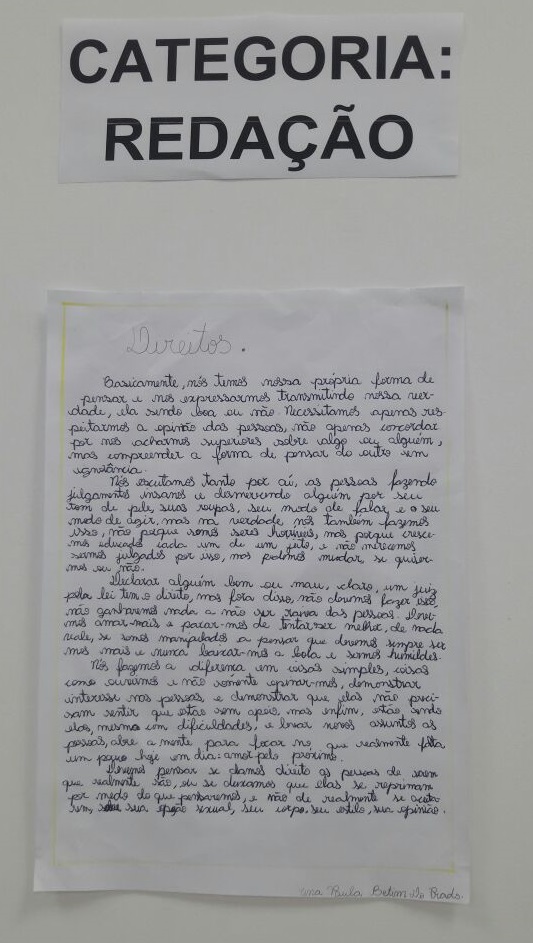 CATEGORIA:
REDAÇÃO
Direitos.
Basicamente, nós temos nossa própria forma de
pensar e nos expressarmos transmitindo nossa ver-
dade, ela sendo boa ou não. Necessitamos apenas res-
peitarmos a opinião das pessoas, não apenas concordar
por nos acharmos superiores sobre algo ou alguém,
mas compreender a forma de pensar do outro sem
ignorância.
Nós escutamos tanto por aí, as pessoas fazendo
julgamentos insanos e desmerecendo alguém por seu
tom de pele, suas roupas, seu modo de falar e o seu
modo de agir, mas na verdade nós também fazemos
isso, não porque somos seres horríveis, mas porque cresce-
mos educados cada um de um jeito, e não merecemos
sermos julgados por isso, mas podemos mudar, se quiser-
mos ou não.
Declarar alguém bom ou mau, claro, um juiz
pela lei tem o direito, mas fora disso, não devemos fazer isso,
não ganharemos nada a não ser raiva das pessoas. Deve-
mos amar mais e parar-mos de tentar ser melhor, de nada
vale, se somos manipulados a pensar que devemos sempre ser
mos mais e nunca baixar-mos a bola e sermos humildes.
Nós fazemos a diferença em coisas simples, coisas
como ouvirmos e não somente opinar-mos, demonstrar
interesse nas pessoas, e demonstrar que elas não preci-
sam sentir que estão sem apoio, mas enfim, estão, sendo
elas, mesmo com dificuldades, e levar novos assuntos as
pessoas, abre a mente para focar no que realmente falta
um pouco hoje em dia: amor pelo próximo.
Devemos pensar se damos direito as pessoas de serem
que realmente são, ou se deixamos que elas se reprimam
por medo do que pensaremos, e não de realmente se aceita-
rem, sua opção sexual, seu corpo, seu estilo, sua opinião.
Ana Paula Betim do Prado.